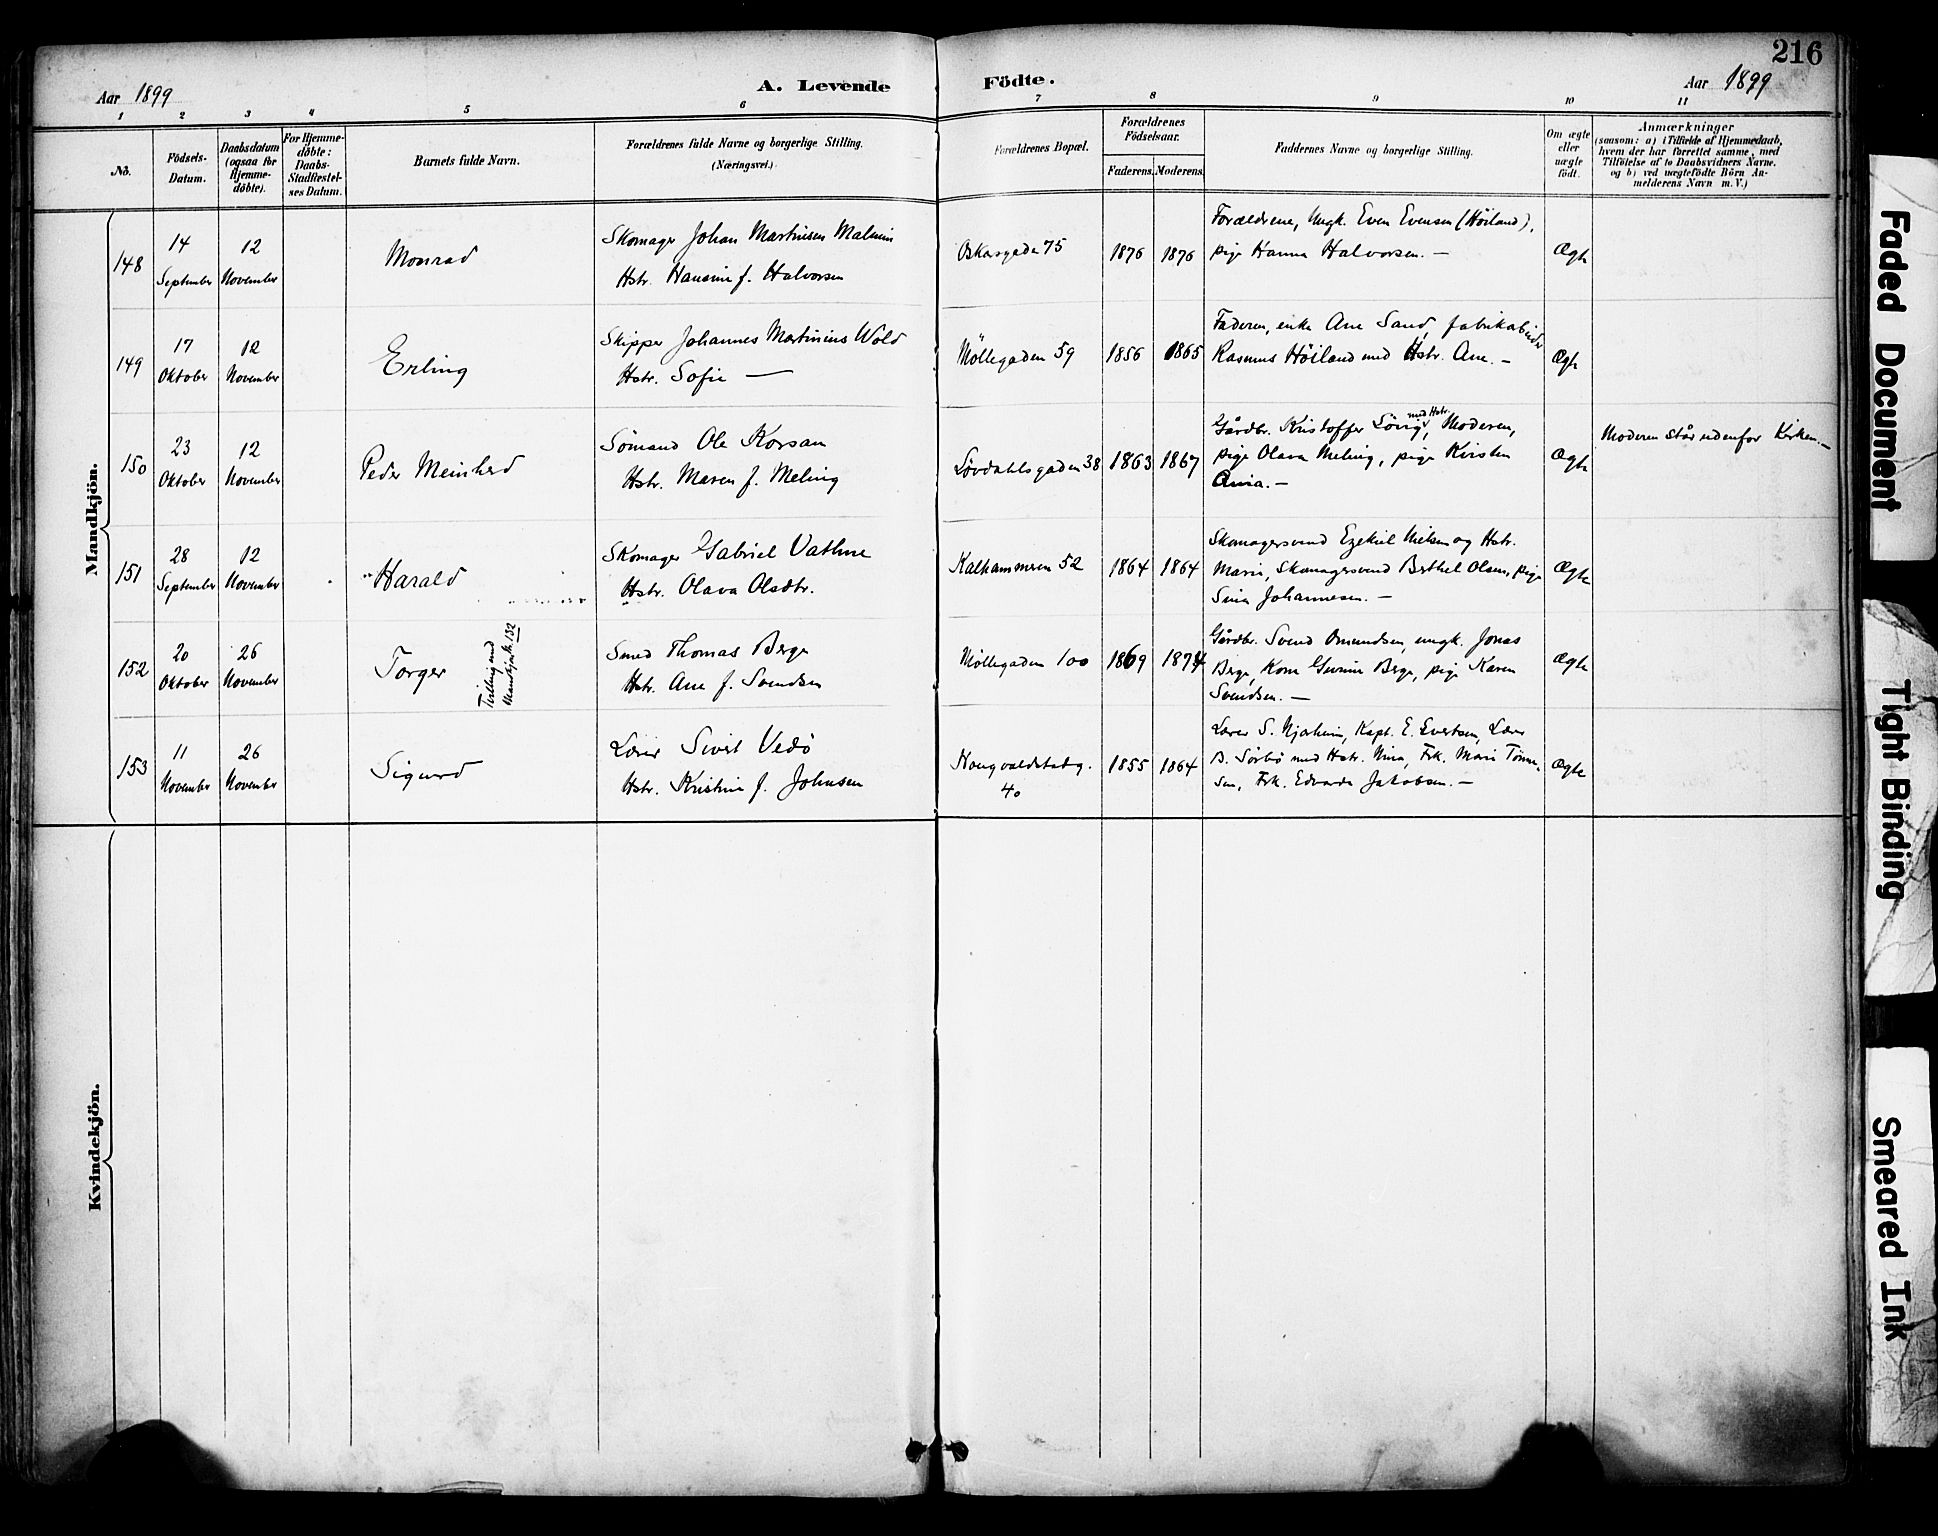 216
Aar 1899
A. Levende
Födte.
Aar 1899
1 2 3 4 5 6 7 8 9 10 11
No.
Födsels-
Datum.
Daabsdatum
(ogsaa for
Hjemme-
döbte).
For Hjemme-
döbte:
Daabs-
Stadfæstel-
ses Datum.
Barnets fulde Navn.
Forældrenes fulde Navne og borgerlige Stilling.
(Næringsvei.)
Forældrenes Bopæl.
Forældrenes
Födselsaar.
Faderens. Moderens.
Faddernes Navne og borgerlige Stilling.
Om ægte
eller
uægte
födt.
Anmærkninger
(saasom: a) i Tilfælde af Hjemmedaab,
hvem der har forrettet samme, med
Tilföielse af to Daabsvidners Navne.
og b) ved uægtefödte Börn An-
melderens Navn m. V.)
Mandkjön.
148
14
September
12
November
Monrad
Skomager Johan Martinsen Malmin
Hstr. Hansine f. Halvorsen
Oskarsgaden 75
1876
1876
Forældrene, Ungk. Even Evensen (Höiland),
pige Hanna Halvorsen. —
Ægte
149
17
Oktober
12
November
Erling
Skipper Johannes Martinius Wold
Hstr. Sofie —
Möllegaden 59
1856
1865
Faderen, enke Ane Sand, fabrikarbeider
Rasmus Höiland med Hstr. Ane. —
Ægte
150
23
Oktober
12
November
Peder Meinhard
Sömand Ole Korsan
Hstr. Maren f. Meling
Lövdahlsgaden 38
1863
1867
Gårdbr. Kristoffer Sörig med Hstr., Moderen,
pige Olava Meling, pige Kirsten
Ania. —
Ægte
Moderen står udenfor Kirken. —
151
28
September
12
November
Harald
Skomager Gabriel Vathne
Hstr. Olava Olsdtr.
Kalhammeren 52
1864
1864
Skomagersvend Ezekiel Nielsen og Hstr.
Marie, Skomagersvend Berthel Olsen, pige
Sina Johannesen. —
Ægte
152
20
Oktober
26
November
Torger
Tvilling med
Mandkjön № 132
Smed Thomas Berge
Hstr. Ane f. Svendsen
Möllegaden 100
1869
1874
Gårdbr. Svend Omundsen, ungk. Jonas
Berge, Kone Gurine Berge, pige Karen
Svendsen. —
Ægte
153
11
November
26
November
Sigurd
Lærer Sivert Vedö
Hstr. Kristine f. Johnsen
Kongvaldstadg.
40
1855
1864
Lærer S. Njaheim, Kapt. E. Evertsen, Lærer
B. Sörbö med Hstr. Nina, Frk. Marie Tönne-
sen, Frk. Edvarda Jakobsen. —
Ægte
Kvindekjön.
Faded Document
Tight Binding
Smeared Ink